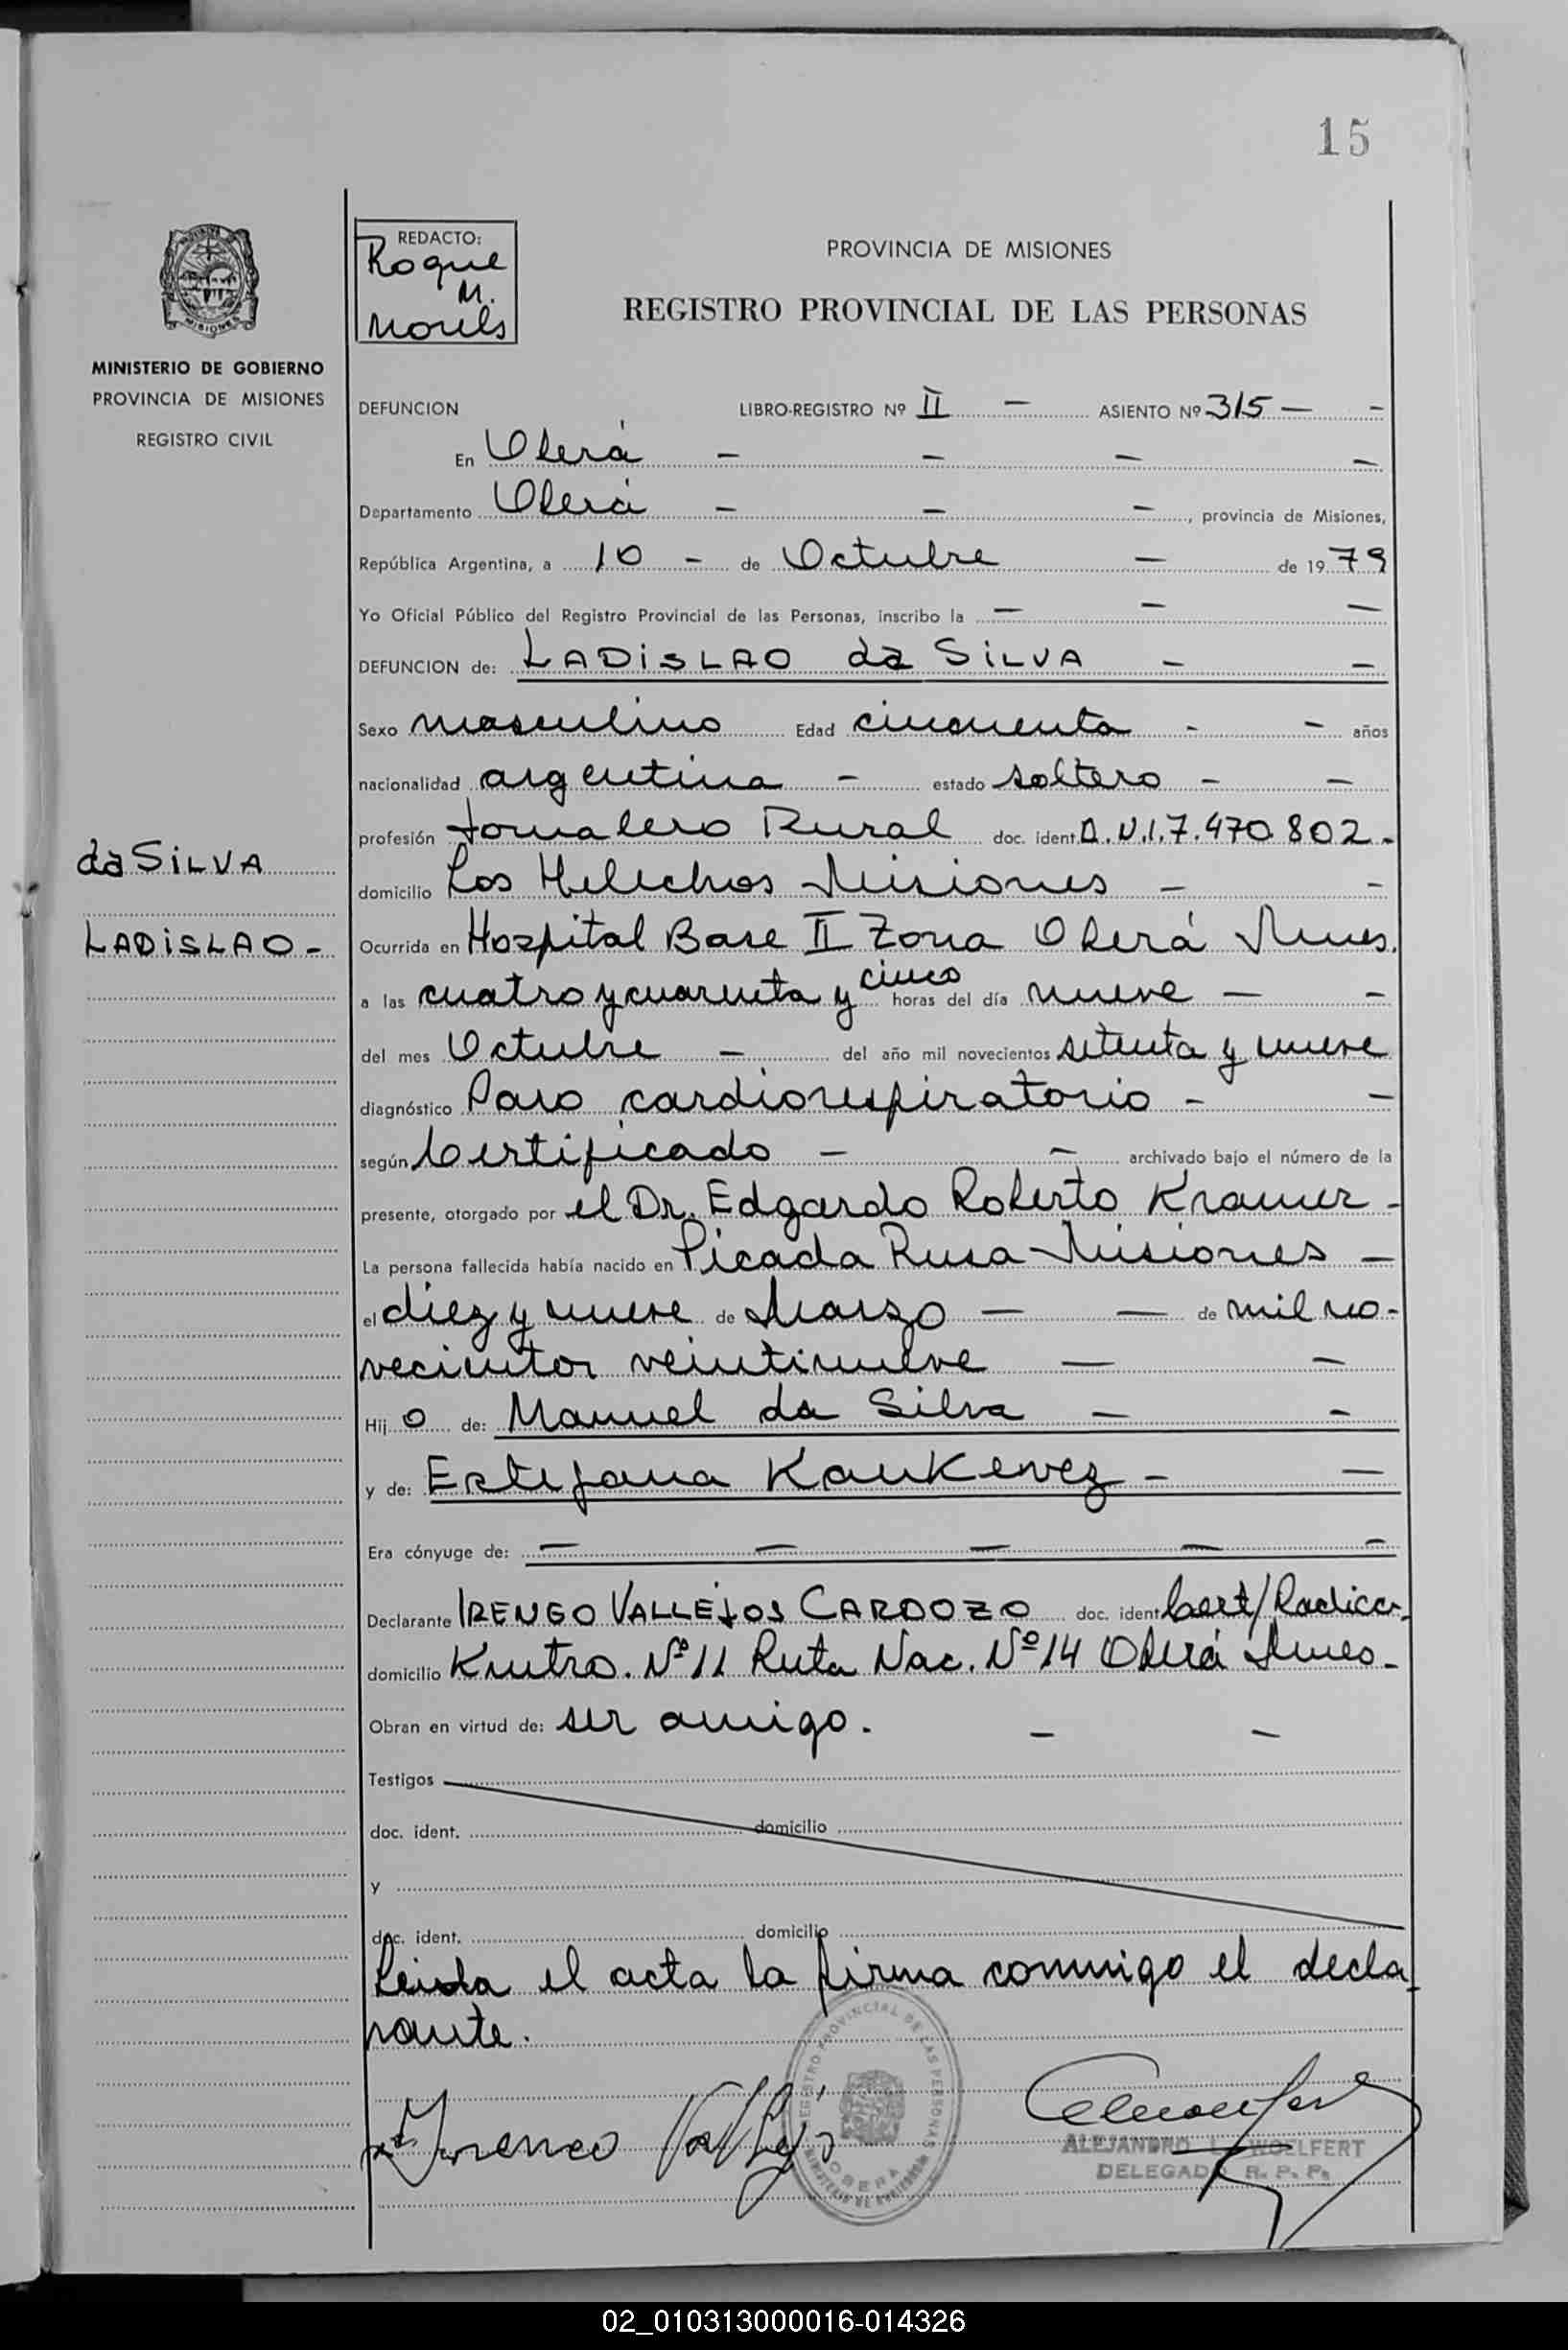 15
REDACTO:
Roque
M.
PROVINCIA DE MISIONES
REGISTRO PROVINCIAL DE LAS PERSONAS
MINISTERIO DE GOBIERNO
PROVINCIA DE MISIONES
REGISTRO CIVIL
DEFUNCION LIBRO-REGISTRO Nº II - ASIENTO Nº 315 - -
En Oberá - - - -
Departamento Oberá - - - , provincia de Misiones,
República Argentina, a 10 - de Octubre - de 1979
Yo Oficial Público del Registro Provincial de las Personas, inscribo la - - -
DEFUNCION de: LADiSLAO da SiLVA - -
Sexo masculino Edad cincuenta - - años
nacionalidad argentina - estado soltero - -
profesión Jornalero Rural doc. ident D.N.I. 7.470.802 -
da SiLVA
LADiSLAO -
domicilio Los Helechos Misiones - -
Ocurrida en Hospital Base II Zona Oberá Mnes.
a las cuatro y cuarenta y cinco horas del día nueve - -
del mes Octubre - del año mil novecientos setenta y nueve
diagnóstico Paro cardiorespiratorio - -
según Certificado - - archivado bajo el número de la
presente, otorgado por el Dr. Edgardo Roberto Kramer -
La persona fallecida había nacido en Picada Rusa Misiones -
el diez y nueve de Marzo - - de mil no-
vecientos veintinueve - -
Hij o de: Manuel da Silva - -
y de: Estefana Kaukevez - -
Era cónyuge de: - - - - -
Declarante IRENEO VALLEJOS CARDOZO doc. ident Cert/Radica-
domicilio Kmtro. Nº 11 Ruta Nac. Nº 14 Oberá Mnes -
Obran en virtud de: ser amigo. - -
Testigos
doc. ident. domicilio
y
doc. ident. domicilio
Leida el acta la firma conmigo el decla
rante.
REGISTRO PROVINCIAL DE LAS PERSONAS
OBERA
Ireneo Vallejos
ALEJANDRO L. WOELFERT
DELEGADO R. P. P.
02_010313000016-014326